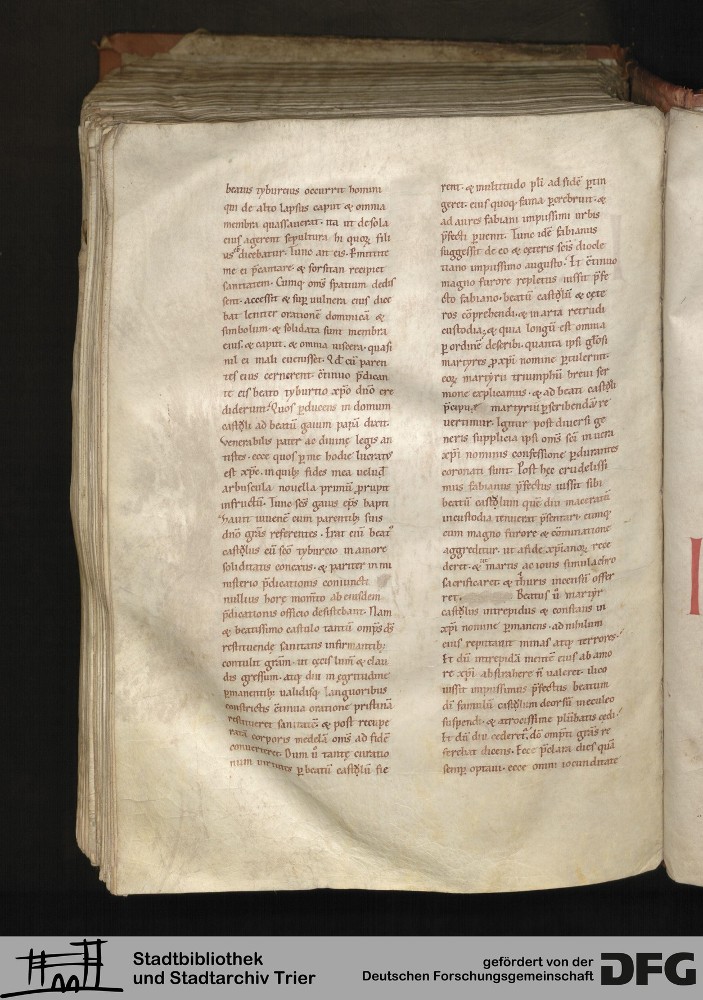 beatus tyburcius occurrit homini
qui de alto lapsus caput & omnia
membra quassauerat. ita ut de sola
eius agerent sepultura hi quorum filius
dicebatur. Tunc ait eis. Permittite
me ei p̄cantare. & forsitan recipiet
sanitatem. Cumq; om̄s spatium dedissent.
accessit & sup̄ uulnera eius dicebat
leniter orationē dominicā &
simbolum. & solidata sunt membra
eius. & caput. & omnia uiscera. quasi
nil ei mali euenisset. Qd̄ cū parentes
eius cernerent. c̄tinuo p̄dicante
eis beato tyburtio xp̄o dn̄o crediderunt.
Quos p̄ducens in domum
castoli ad beatū gaium papā dixit.
Venerabilis pater ac diuinę legis antistes.
ecce quos p̄ me hodie lucratus
est xp̄c. in quib; fides mea uelud
arbuscula nouella primū prupit
infructū. Tunc sc̄s gaius ep̄s baptizauit
iuuenē cum parentib; suis
dn̄o grās referentes. Erat enī beatus
castolus cū sc̄o tyburcio in amore
soliditatis conexus. & pariter in ministerio
p̄dicationis coniuncti
nullius horę mom̄to ab eiusdem
p̄dicationis officio desistebant. Nam
& beatissimo castulo tantū omp̄s ds̄
restituende sanitatis infirmantib;
contulit grām. ut cęcis lum̄ & claudis
gressum. atq; diu in egritudine
p̄manentib; ualidisq; languoribus
constrictis c̄tinua oratione pristinā
restitueret sanitatē & post recuperatā
corporis medelā om̄s ad fidē
conuerteret. Dum ū tantę curationum
uirtutes p̄ beatū castolū fierent.
& multitudo pl̄i ad fidē p̄tingeret.
eius quoq; fama p̄crebruit. &
ad aures fabiani impiissimi urbis
p̄fecti p̄uenit. Tunc idē fabianus
suggessit de eo & cęteris sc̄is diocletiano
impiissimo augusto. Et c̄tinuo
magno furore repletus iussit p̄fecto
fabiano. beatū castolū & cęteros
cōprehendi. & in arta retrudi
custodia; & quia longū est omnia
p̄ ordinē describi. quanta ipsi gl̄osi
martyres p̄ xp̄i nomine p̄tulerunt.
eoꝝ martyrū triumphū breui sermone
explicamus. & ad beati castoli
p̄cipuę martyriū p̄scribendū reuertimur.
Igitur post diuersi generis
supplicia ipsi om̄s sc̄i in uera
xp̄i nominis confessione p̄durantes
coronati sunt. Post hęc crudelissimus
fabianus p̄fectus iussit sibi
beatū castolum quē diu maceratū
in custodia tenuerat p̄sentari. cumq;
cum magno furore & cōminatione
aggreditur. ut a fide xp̄ianoꝝ recederet.
& martis ac iouis simulachro
sacrificaret. & thuris incensū offerret.
Beatus ū martyr
castolus intrepidus & constans in
xp̄i nomine p̄manens. ad nihilum
eius reputauit minas atq; terrores.
Et dū intrepidā mentē eius ab amore
xp̄i abstrahere n̄ ualeret. ilico
iussit impiissimus p̄fectus beatum
dī famulū castolum deorsū in eculeo
suspendi. & atrocissime plūbatis cędi.
Et dū diu cederet̄. dō omp̄ti grās referebat
dicens. Ecce p̄clara dies quā
semp̄ optaui. ecce omni iocunditate
Stadtbibliothek
und Stadtarchiv Trier
gefördert von der
Deutschen Forschungsgemeinschaft
DFG